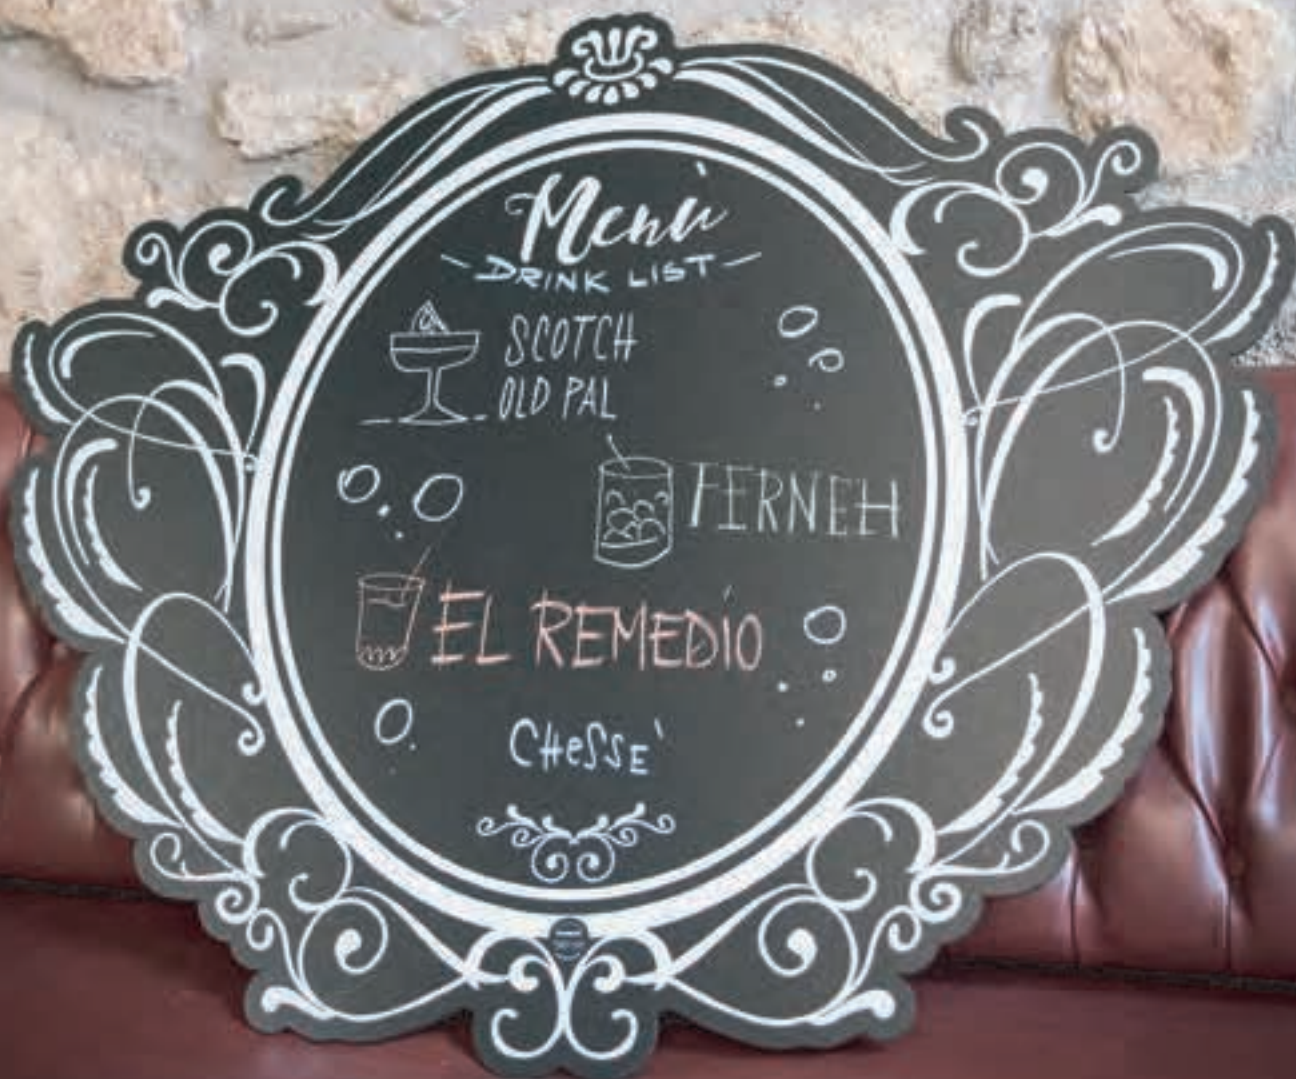 Menù
DRINK LIST
SCOTCH
OLD PAL
FERNEH
EL REMEDIO
CHeSSE'